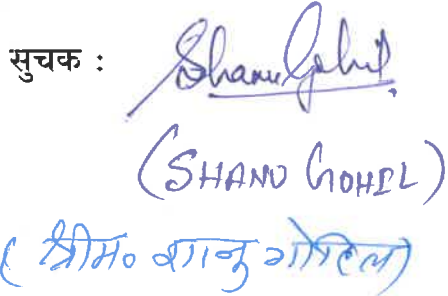 सुचक : Shanu Gohil
(SHANU GOHIL)
( श्रीम० शानु गोहिल)